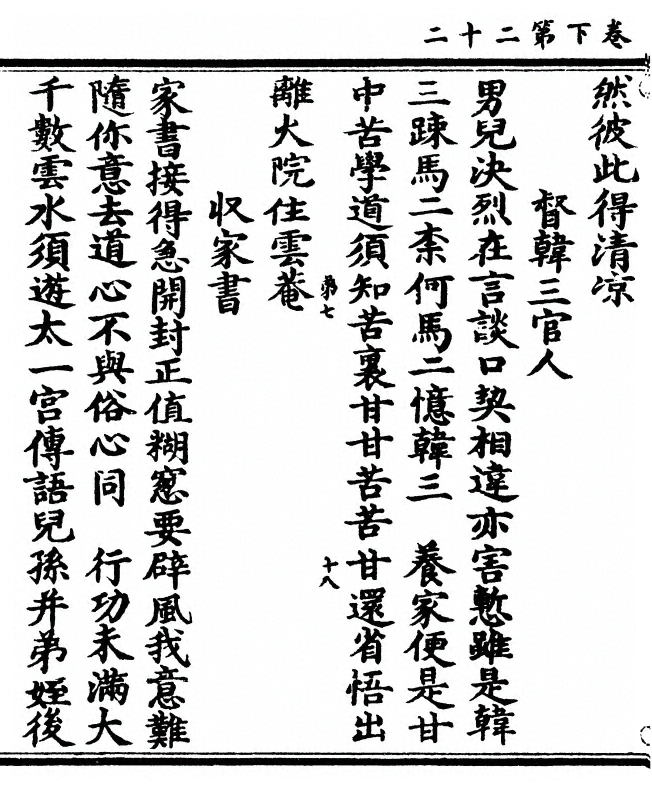 卷下第二十二
然彼此得清凉
督韓三官人
男兒決烈在言談口契相違亦害慙雖是韓
三踈馬二柰何馬二憶韓三　養家便是甘
中苦學道須知苦裏甘甘苦苦甘還省悟出
第七
十八
離大院住雲菴
収家書
家書接得急開封正值糊窓要辟風我意難
隨你意去道心不與俗心同　行功未滿大
千數雲水須遊太一宫傳語兒孫并弟姪後